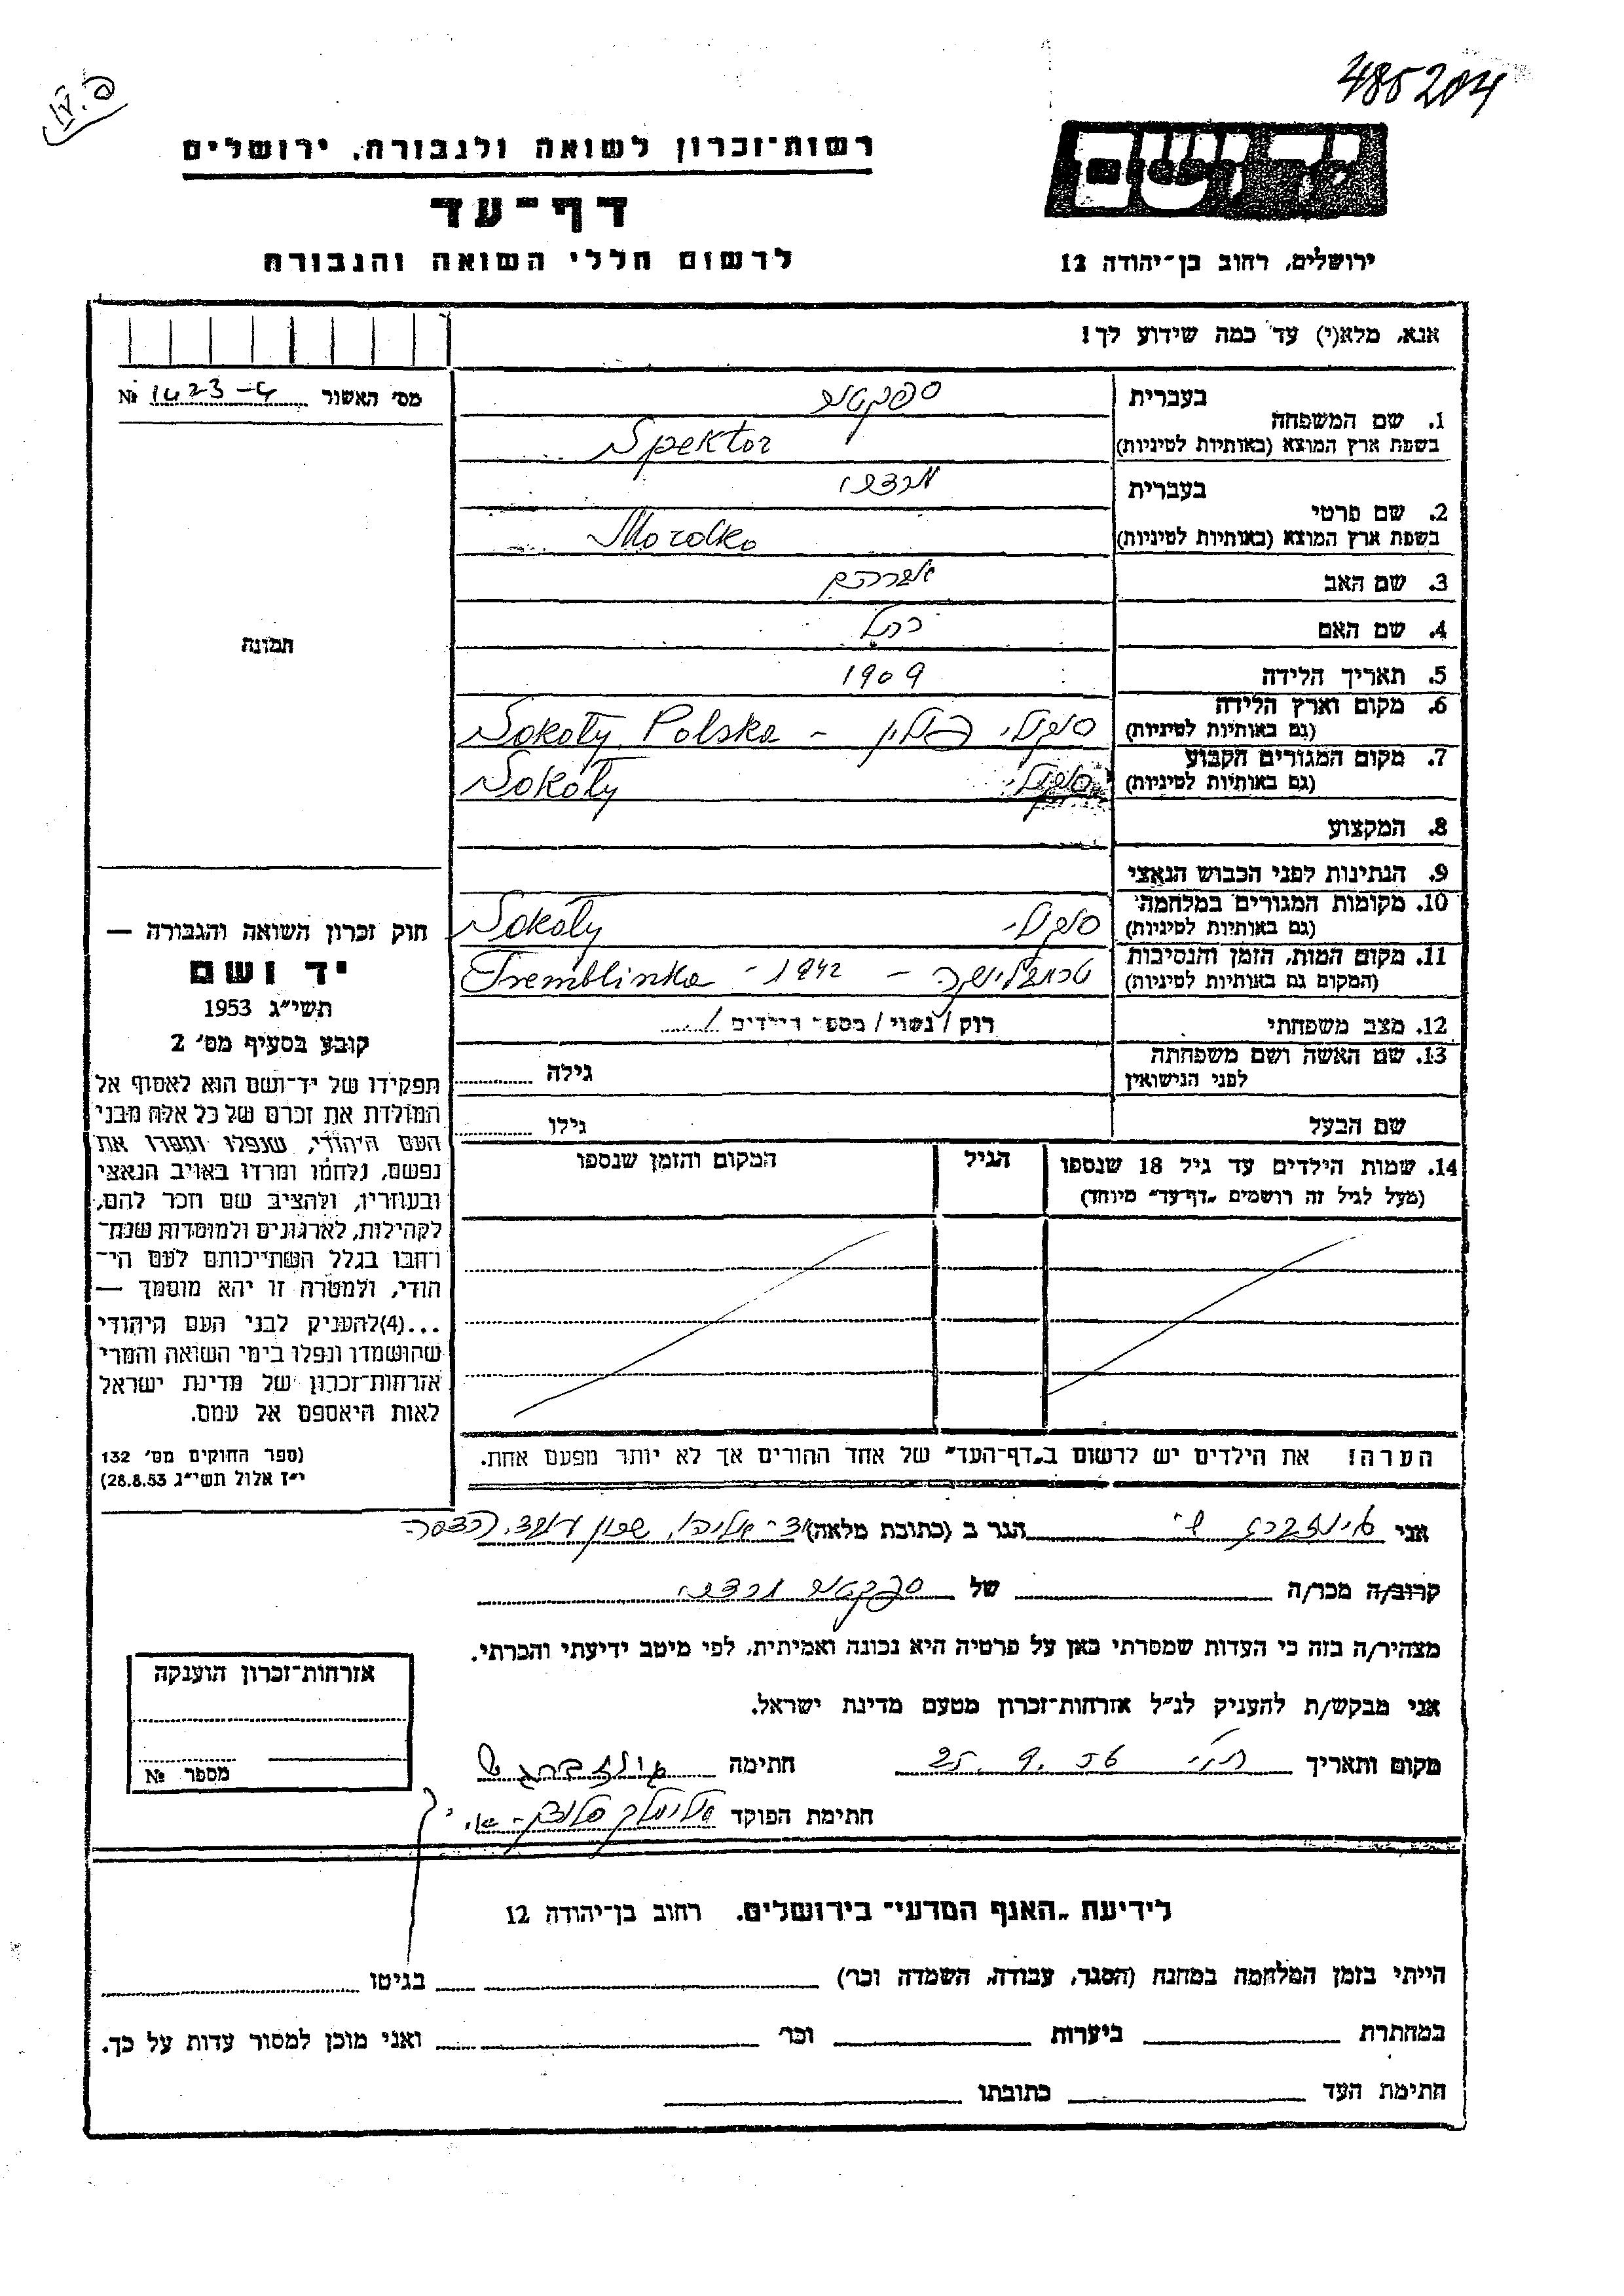 485204
רשות־זכרון לשואה ולגבורה, ירושלים
יד ושם
דף־עד
לרשום חללי השואה והגבורה
ירושלים, רחוב בן־יהודה 12
אנא, מלא(י) עד כמה שידוע לך!
מס׳ האשור № 1423-4
תמונה
בעברית ספקטור
1. שם המשפחה
בשפת ארץ המוצא (באותיות לטיניות) Spektor
בעברית מרדכי
2. שם פרטי
בשפת ארץ המוצא (באותיות לטיניות) Mordko
3. שם האב אברהם
4. שם האם רחל
5. תאריך הלידה 1909
6. מקום וארץ הלידה סוקולי פולין – Sokoły Polska
(גם באותיות לטיניות)
7. מקום המגורים הקבוע סוקולי Sokoły
(גם באותיות לטיניות)
8. המקצוע
9. הנתינות לפני הכבוש הנאצי
10. מקומות המגורים במלחמה סוקולי Sokoły
(גם באותיות לטיניות)
11. מקום המות, הזמן והנסיבות טרמבלינקה – 1942 - Tremblinka
(המקום גם באותיות לטיניות)
12. מצב משפחתי רוק / נשוי / מספר הילדים /
13. שם האשה ושם משפחתה גילה
לפני הנישואין
שם הבעל גילו
14. שמות הילדים עד גיל 18 שנספו הגיל המקום והזמן שנספו
(מעל לגיל זה רושמים „דף־עד״ מיוחד)
הערה! את הילדים יש לרשום ב„דף־העד״ של אחד ההורים אך לא יותר מפעם אחת.
חוק זכרון השואה והגבורה —
יד ושם
תשי״ג 1953
קובע בסעיף מס׳ 2
תפקידו של יד־ושם הוא לאסוף אל
המולדת את זכרם של כל אלה מבני
העם היהודי, שנפלו ומסרו את
נפשם, נלחמו ומרדו באויב הנאצי
ובעוזריו, ולהציב שם וזכר להם,
לקהילות, לארגונים ולמוסדות שנח־
רבו בגלל השתייכותם לעם הי־
הודי, ולמטרה זו יהא מוסמך —
...(4) להעניק לבני העם היהודי
שהושמדו ונפלו בימי השואה והמרי
אזרחות־זכרון של מדינת ישראל
לאות היאספם אל עמם.
(ספר החוקים מס׳ 132
י״ז אלול תשי״ג 28.8.53)
אני הגר ב (כתובת מלאה)
קרוב/ה מכר/ה של ספקטור מרדכי
מצהיר/ה בזה כי העדות שמסרתי כאן על פרטיה היא נכונה ואמיתית, לפי מיטב ידיעתי והכרתי.
אני מבקש/ת להעניק לנ״ל אזרחות־זכרון מטעם מדינת ישראל.
מקום ותאריך 25. 9. 56 חתימה
חתימת הפוקד
אזרחות־זכרון הוענקה
מספר №
לידיעת „האגף המדעי״ בירושלים, רחוב בן־יהודה 12
הייתי בזמן המלחמה במחנה (הסגר, עבודה, השמדה וכר׳) בגיטו
במחתרת ביערות וכר׳ ואני מוכן למסור עדות על כך.
חתימת העד כתובתו